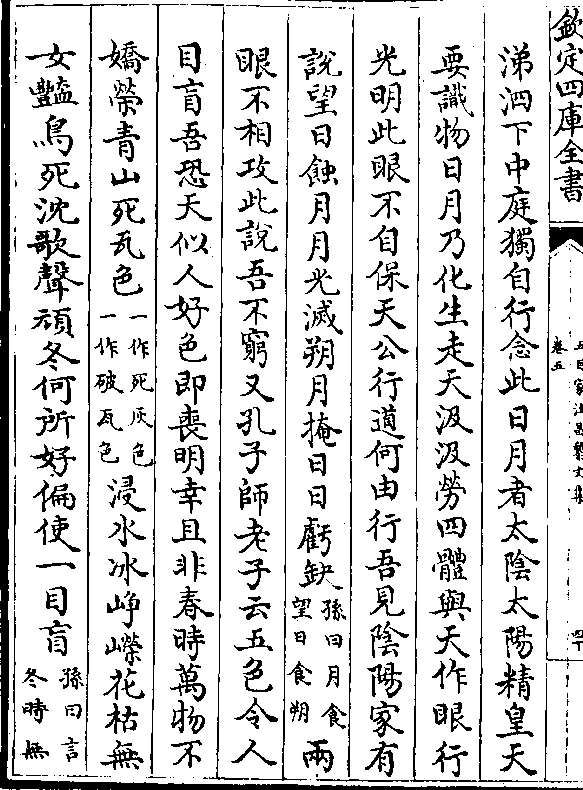 欽定四庫全書
五百家注昌黎文集
卷五
四十
涕泗下中庭獨自行念此日月者太陰太陽精皇天
要識物日月乃化生走天汲汲勞四體與天作眼行
光明此眼不自保天公行道何由行吾見陰陽家有
說望日蝕月月光滅朔月掩日日虧缺孫曰月食望日食朔兩
眼不相攻此說吾不窮又孔子師老子云五色令人
目盲吾恐天似人好色即喪明幸且非春時萬物不
嬌榮青山死瓦色一作死灰色一作破瓦色浸水冰崢嶸花枯無
女豔鳥死沈歌聲頑冬何所好偏使一目盲孫曰言冬時無